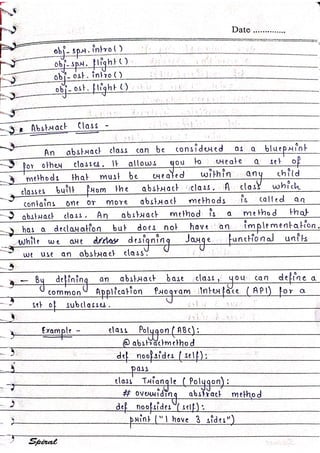 Date ..............
obj_spr.intro()
obj_spr.flight()
obj_ost.intro()
obj_ost.flight()
Abstract Class -
An abstract class can be considered as a blueprint
for other classes. It allows you to create a set of
methods that must be created within any child
classes built from the abstract class. A class which
contains one or more abstract methods is called an
abstract class. An abstract method is a method that
has a declaration but does not have an implementation.
While we are designing large functional units
we use an abstract class.
- By defining an abstract base class, you can define a
common Application Program Interface (API) for a
set of subclasses.
Example - class Polygon(ABC):
@abstractmethod
def noofsides(self):
pass
class Triangle (Polygon):
# overriding abstract method
def noofsides (self):
print("I have 3 sides")
Spiral